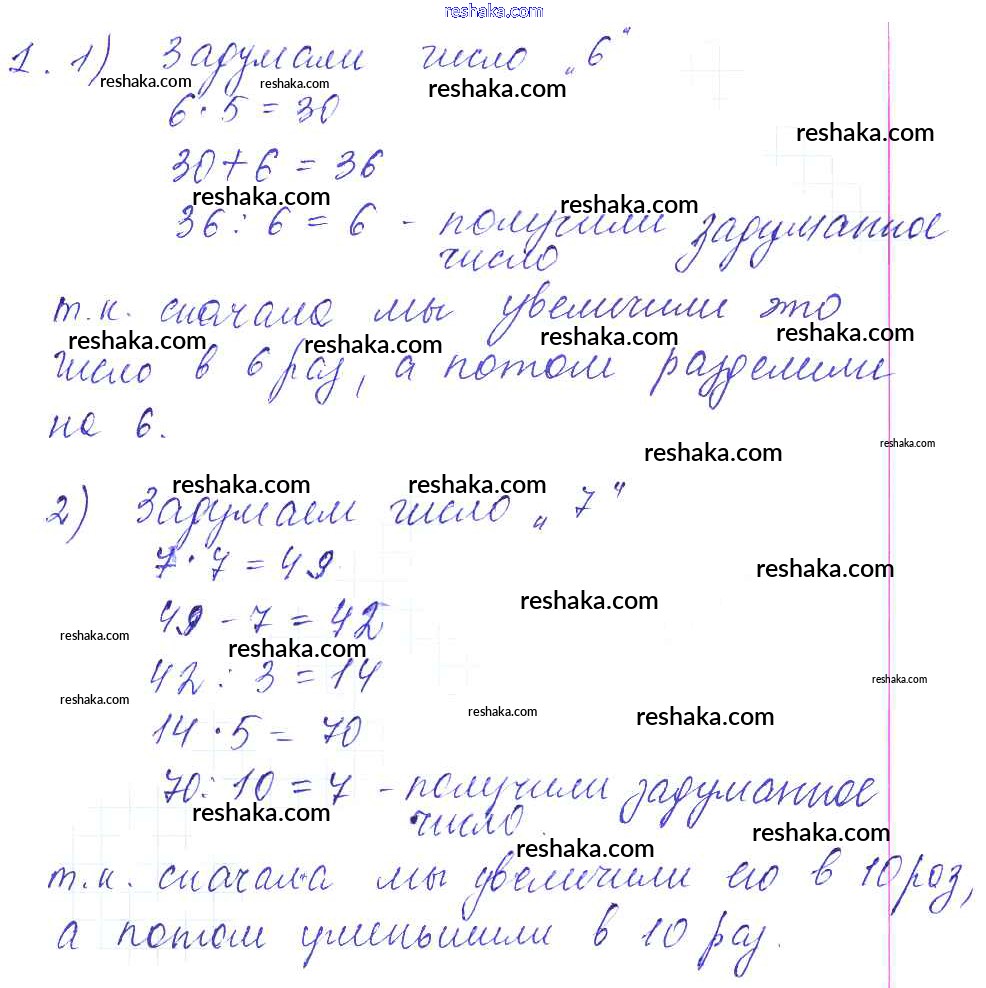 reshaka.com
1. 1) Задумали число „6“
reshaka.com reshaka.com reshaka.com
6 · 5 = 30
reshaka.com
30 + 6 = 36
reshaka.com reshaka.com
36 : 6 = 6 - получили задуманное
число
т.к. сначала мы увеличили это
reshaka.com reshaka.com reshaka.com reshaka.com
число в 6 раз, а потом разделили
на 6.
reshaka.com reshaka.com
reshaka.com reshaka.com
2) Задумаем число „7“
7 · 7 = 49
reshaka.com
reshaka.com
49 - 7 = 42
reshaka.com reshaka.com
42 : 3 = 14
reshaka.com
reshaka.com reshaka.com reshaka.com
14 · 5 = 70
70 : 10 = 7 - получили задуманное
reshaka.com
число
reshaka.com reshaka.com
т.к. сначала мы увеличили его в 10 раз,
а потом уменьшили в 10 раз.